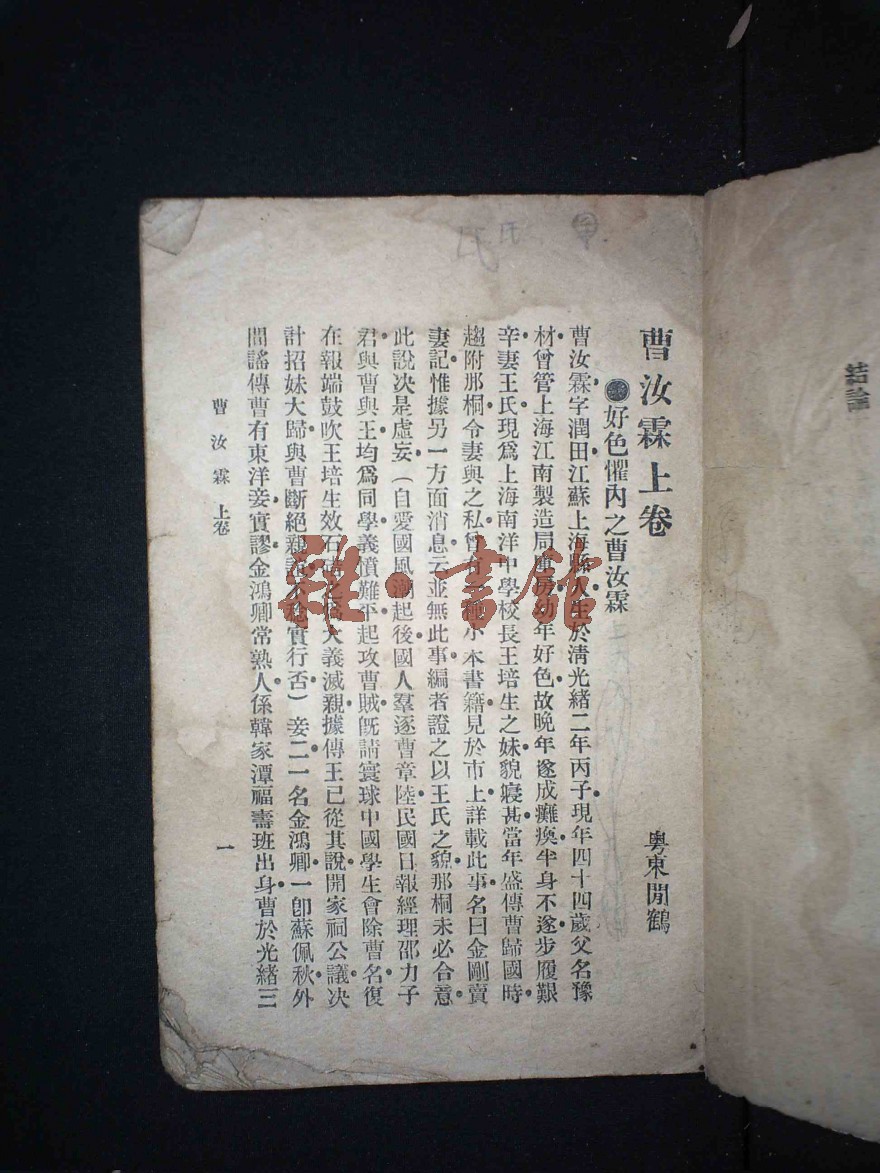 結論
曹汝霖上卷
粵東閒鶴
好色懼內之曹汝霖
曹汝霖字潤田江蘇上海縣人生於清光緒二年丙子現年四十四歲父名豫
材曾管上海江南製造局 幼年好色故晚年遂成癱瘓半身不遂步履艱
辛妻王氏現爲上海南洋中學校長王培生之妹貌寢甚當年盛傳曹歸國時
趨附那桐令妻與之私曾有 種小本書籍見於市上詳載此事名曰金剛賣
妻記惟據另一方面消息云並無此事編者證之以王氏之貌那桐未必合意
此說决是虛妄(自愛國風潮起後國人羣逐曹章陸民國日報經理邵力子
君與曹與王均爲同學義憤難平起攻曹賊旣請寰球中國學生會除曹名復
在報端鼓吹王培生效石 大義滅親據傳王已從其說開家祠公議决
計招妹大歸與曹斷絕親 不 實行否)妾二一名金鴻卿一卽蘇佩秋外
間謠傳曹有東洋妾實謬金鴻卿常熟人係韓家潭福壽班出身曹於光緒三
曹汝霖 上卷
一
雜·書館